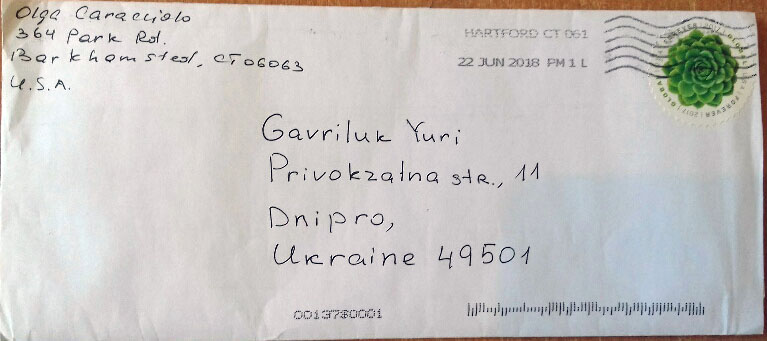 Olga Caracciolo
364 Park Rd.
Barkhamsted, CT 06063
U.S.A.
HARTFORD CT 061
22 JUN 2018 PM 1 L
Gavriluk Yuri
Privokzalna str., 11
Dnipro,
Ukraine 49501